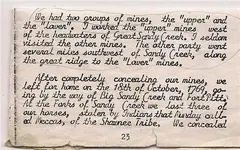 We had two groups of mines, the "upper" and
the "lower", I worked the "upper" mines west
of the headwaters of Great Sandy Creek, I seldom
visited the other mines. The other party went
several miles southwest of Sandy Creek, along
the great ridge to the "Lower" mines.
After completely concealing our mines, we
left for home on the 18th of October, 1769, go-
ing by the way of Big Sandy Creek and Fort Pitt.
At the forks of Sandy Creek we lost three of
our horses, stolen by Indians that Munday call-
ed Meccas, of the Shawnee Tribe. We concealed
23